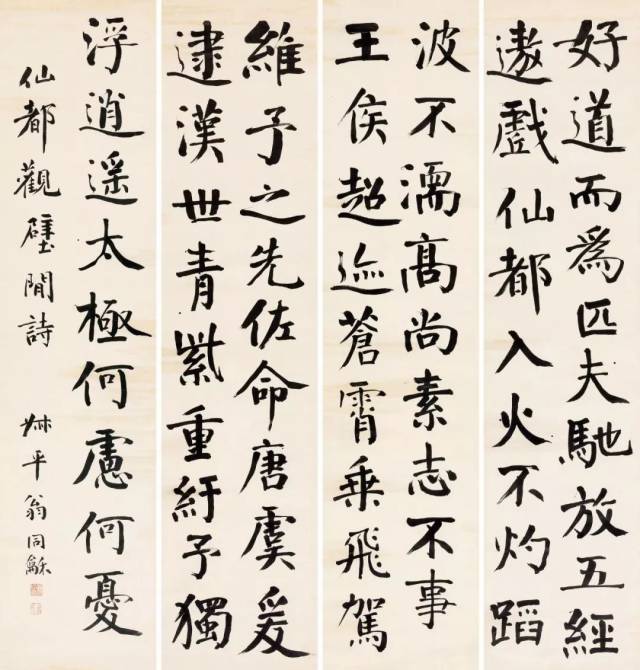 好道而爲匹夫馳放五經
遨戲仙都入火不灼蹈
波不濡髙尚素志不事
王侯超迹蒼霄乗飛駕
維予之先佐命唐虞爰
逮漢世青紫重紆予獨
浮逍遥太極何慮何憂
仙都觀壁閒詩 叔平翁同龢